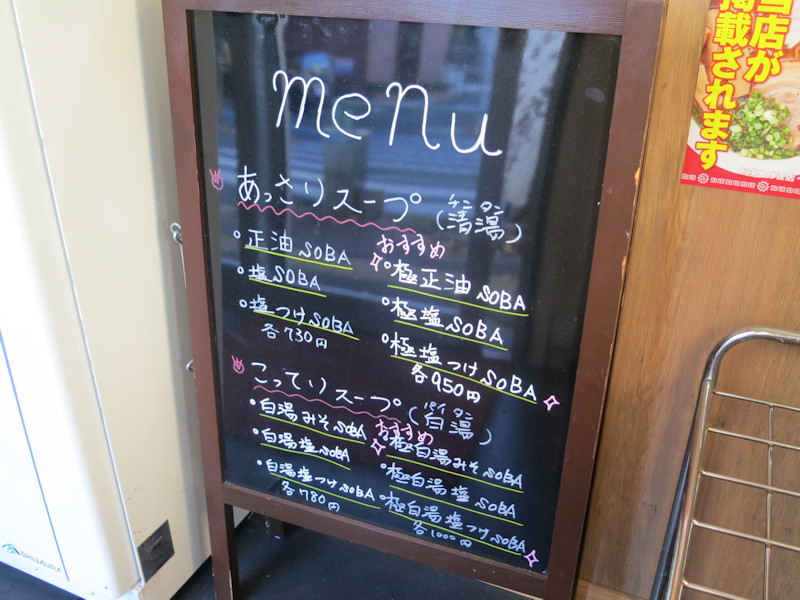 menu
あっさりスープ(清湯)
チンタン
・正油SOBA
・塩SOBA
・塩つけSOBA
各730円
おすすめ
・極正油SOBA
・極塩SOBA
・極塩つけSOBA
各950円
こってりスープ(白湯)
パイタン
・白湯みそSOBA
・白湯塩SOBA
・白湯塩つけSOBA
各780円
おすすめ
・極白湯みそSOBA
・極白湯塩SOBA
・極白湯塩つけSOBA
各1000円
当店が
掲載されます
SHIMURA